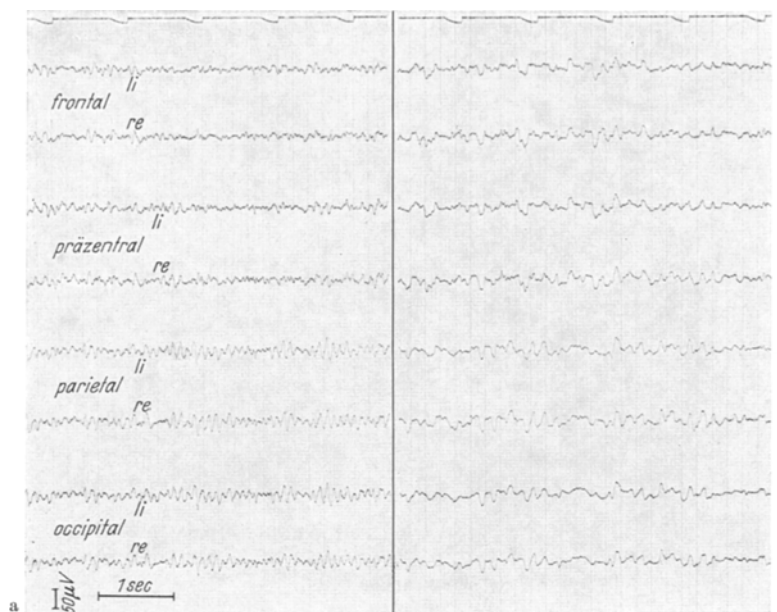 li
frontal
re
li
präzentral
re
li
parietal
re
li
occipital
re
a
50µV
1 sec